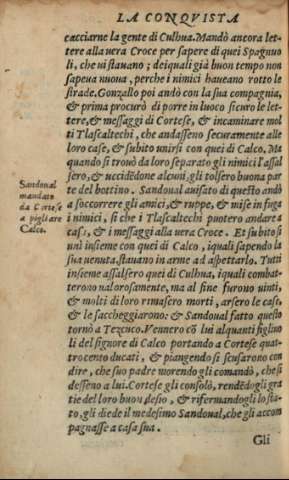 LA CONQVISTA
cacciarne la gente di Culhua. Mandò ancora let-
tere alla vera Croce per sapere di quei Spagnuo
li, che vi stauano; dei quali già buon tempo non
sapeua nuoua, perche i nimici haueano rotto le
strade. Gonzallo poi andò con la sua compagnia,
& prima procurò di porre in luoco sicuro le let-
tere, & messaggi di Cortese, & incaminare mol
ti Tlascaltechi, che andasseno securamente alle
loro case, & subito unirsi con quei di Calco. Ma
quando si trouò da loro separato gli nimici l'assal
sero, & uccidēdone alcuni, gli tolsero buona par
te del bottino. Sandoual auisato di questo andò
a soccorrere gli amici, & ruppe, & mise in fuga
i nimici, si che i Tlascaltechi puotero andare a
casa, & i messaggi alla vera Croce. Et subito si
unì insieme con quei di Calco, iquali sapendo la
sua uenuta stauano in arme ad aspettarlo. Tutti
insieme assalsero quei di Culhua, iquali combat-
terono ualorosamente, ma al fine furono uinti,
& molti di loro rimasero morti, arsero le case,
& le saccheggiarono: & Sandoual fatto questo
tornò a Tezcuco. Vennero cō lui alquanti figliuo
li del signore di Calco portando a Cortese quat-
trocento ducati, & piangendo si scusarono con
dire, che suo padre morendo gli comandò, che si
desseno a lui. Cortese gli consolò, rendēdogli gra
tie del loro buon desio, & rifermandogli lo sta-
to, gli diede il medesimo Sandoual, che gli accom
pagnasse a casa sua.
Gli
Sandoual
mandato
da Cortese
a pigliare
Calco.